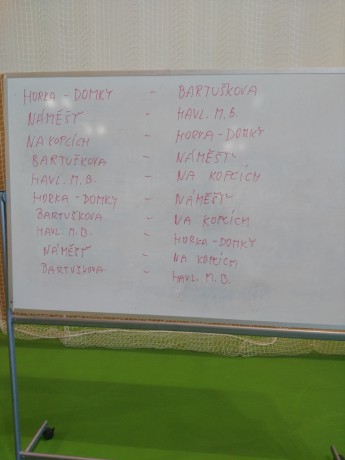 HORKA - DOMKY - BARTUŠKOVA
NÁMĚŠŤ - HAVL. M. B.
NA KOPCÍCH - HORKA - DOMKY
BARTUŠKOVA - NÁMĚŠŤ
HAVL. M. B. - NA KOPCÍCH
HORKA - DOMKY - NÁMĚŠŤ
BARTUŠKOVA - NA KOPCÍCH
HAVL. M. B. - HORKA - DOMKY
NÁMĚŠŤ - NA KOPCÍCH
BARTUŠKOVA - HAVL. M. B.